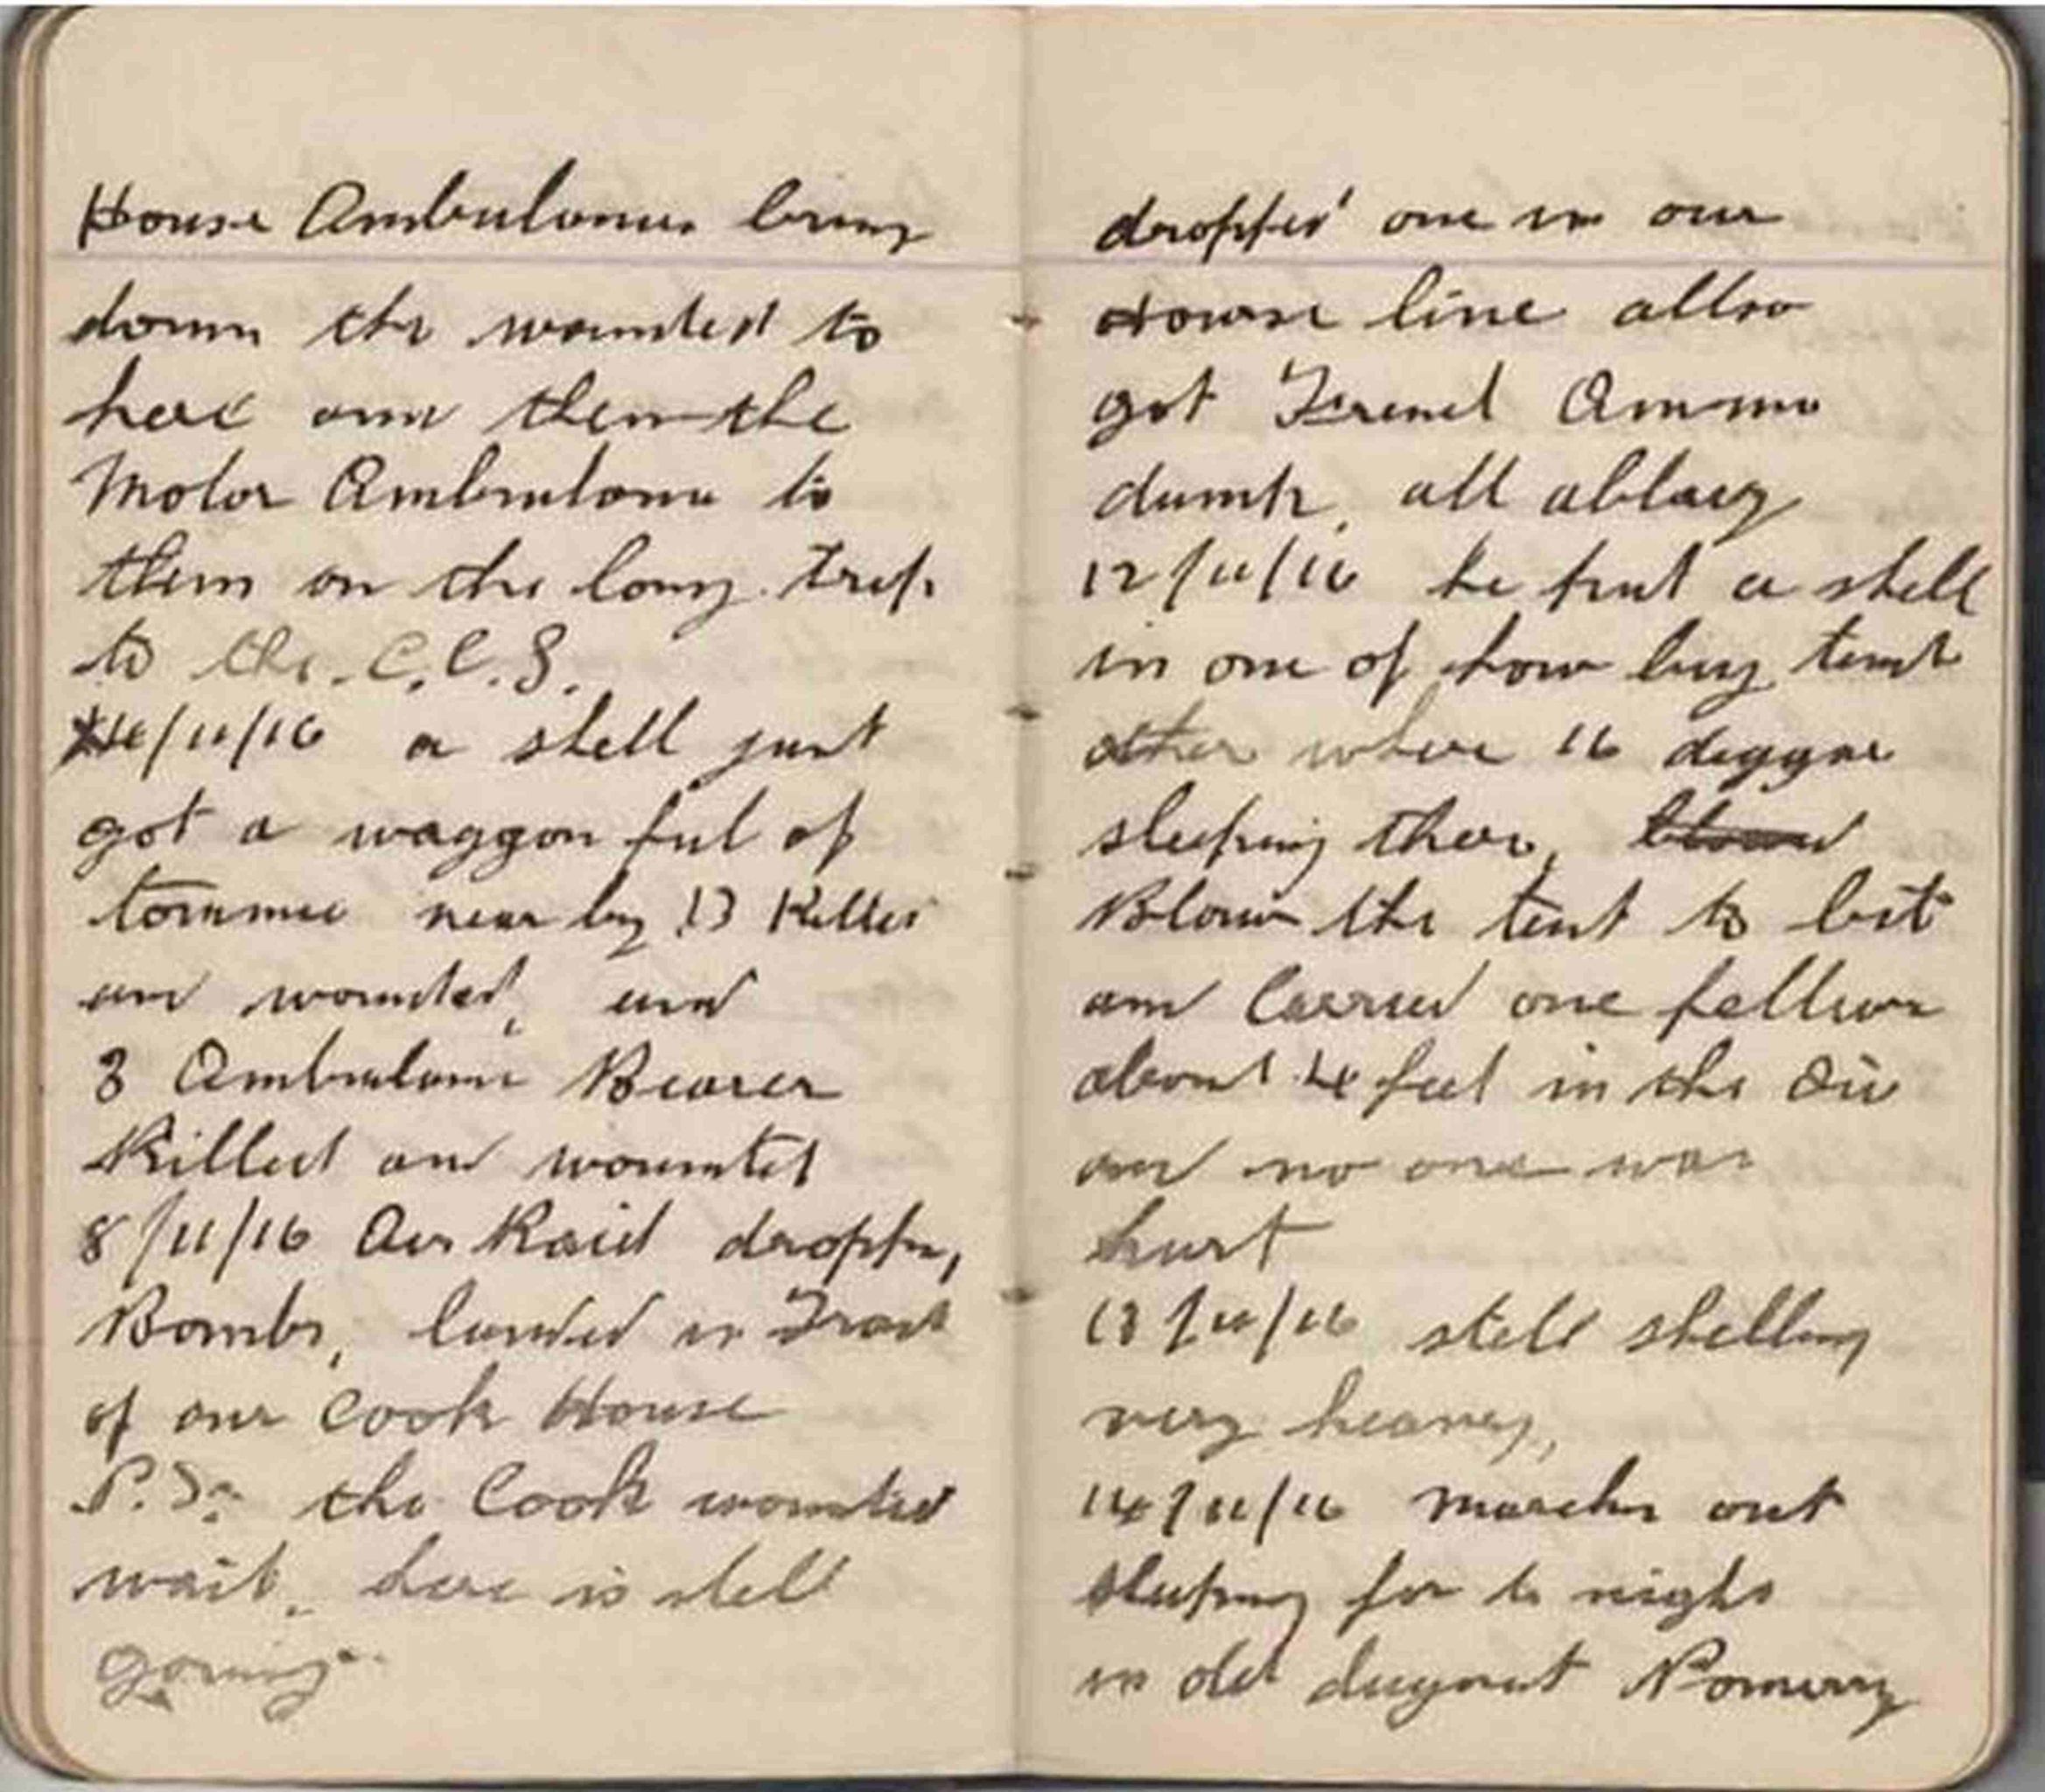 House Ambulances bring
down the wounded to
here and then the
Motor Ambulance to
them on the long trip
to the C.C.S.
4/11/16 a shell just
got a waggon ful of
tommie near by 13 Killed
and wounded, and
3 Ambulance Bearer
Killed and wounded
8/11/16 Air Raid dropping
Bombs, landed in Front
of our Cook House
P.S. the Cook wounded
wait, here is stell
going
dropped one in our
Housse line allso
got Frend Ammo
dump, all ablazy
12/11/16 he put a shell
in one of how big tent
other where 16 diggne
sleeping ther,
Blown the tent to bit
and Carried one fellwo
about 4 feet in the Air
and no one was
hurt
13/11/16 stell shelling
very heavey,
14/11/16 marchn out
sleeping for to night
in old dugout Pomerry